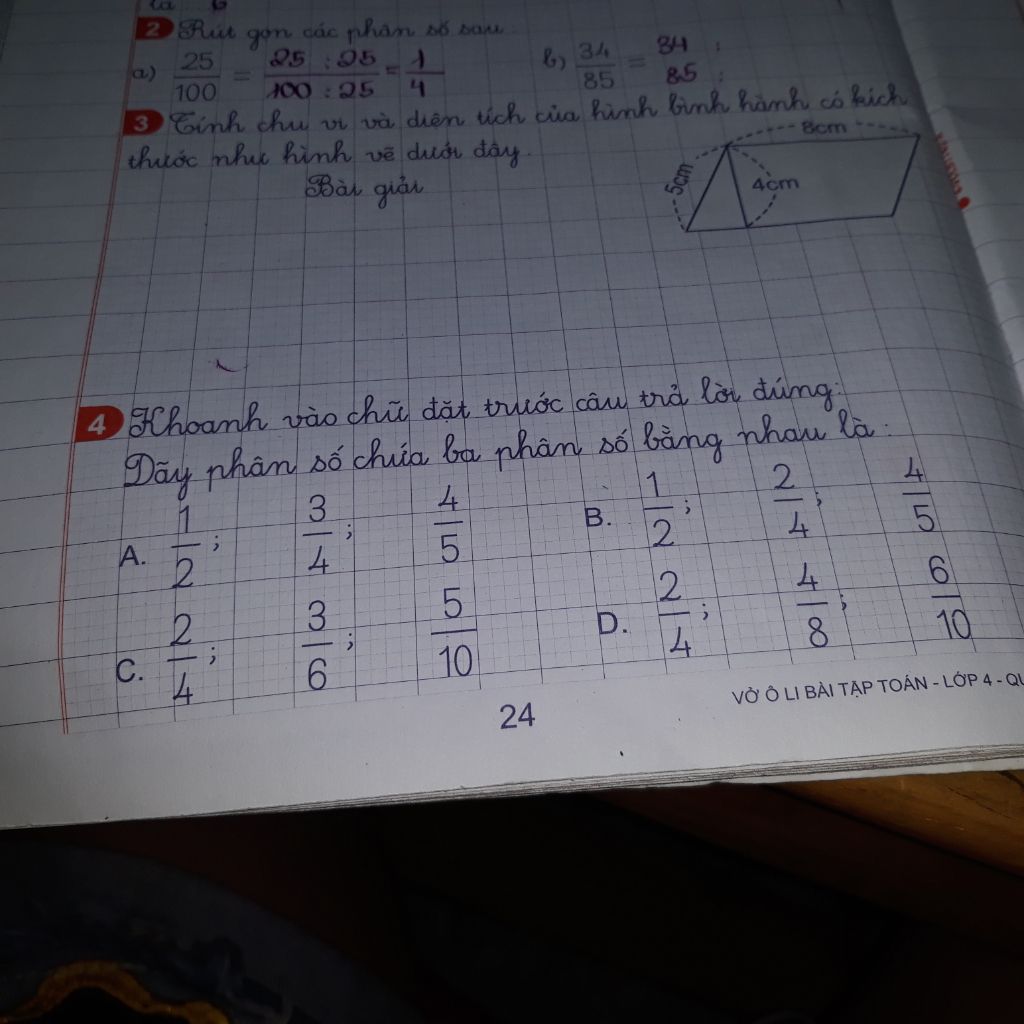 2 Rút gọn các phân số sau
a) 25/100 = 25 : 25/100 : 25 = 1/4 b) 34/85 = 34 :/85 :
3 Tính chu vi và diện tích của hình bình hành có kích
thước như hình vẽ dưới đây.
8cm
5cm
4cm
Bài giải
4 Khoanh vào chữ đặt trước câu trả lời đúng:
Dãy phân số chứa ba phân số bằng nhau là:
A. 1/2; 3/4; 4/5 B. 1/2; 2/4; 4/5
C. 2/4; 3/6; 5/10 D. 2/4; 4/8; 6/10
24
VỞ Ô LI BÀI TẬP TOÁN - LỚP 4 - QU